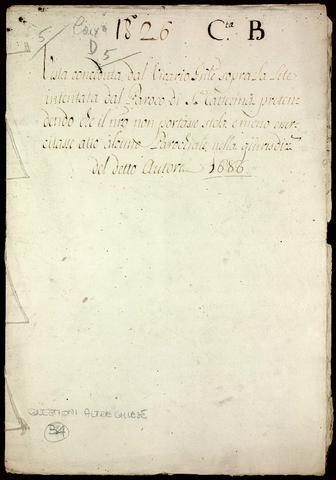 5/ Caixa D 5/ 1826 C.ta B
Vista condotta dal Vicario Gnle sopra la Lite
intentata dal Paroco di S.ta Catterina preten
dendo che il nro non portasse stola e meno eser
citasse atto alcuno Parochiale nella giurisdiz.
del detto Autore 1686.
QUESTIONI ALTRE CHIESE
34